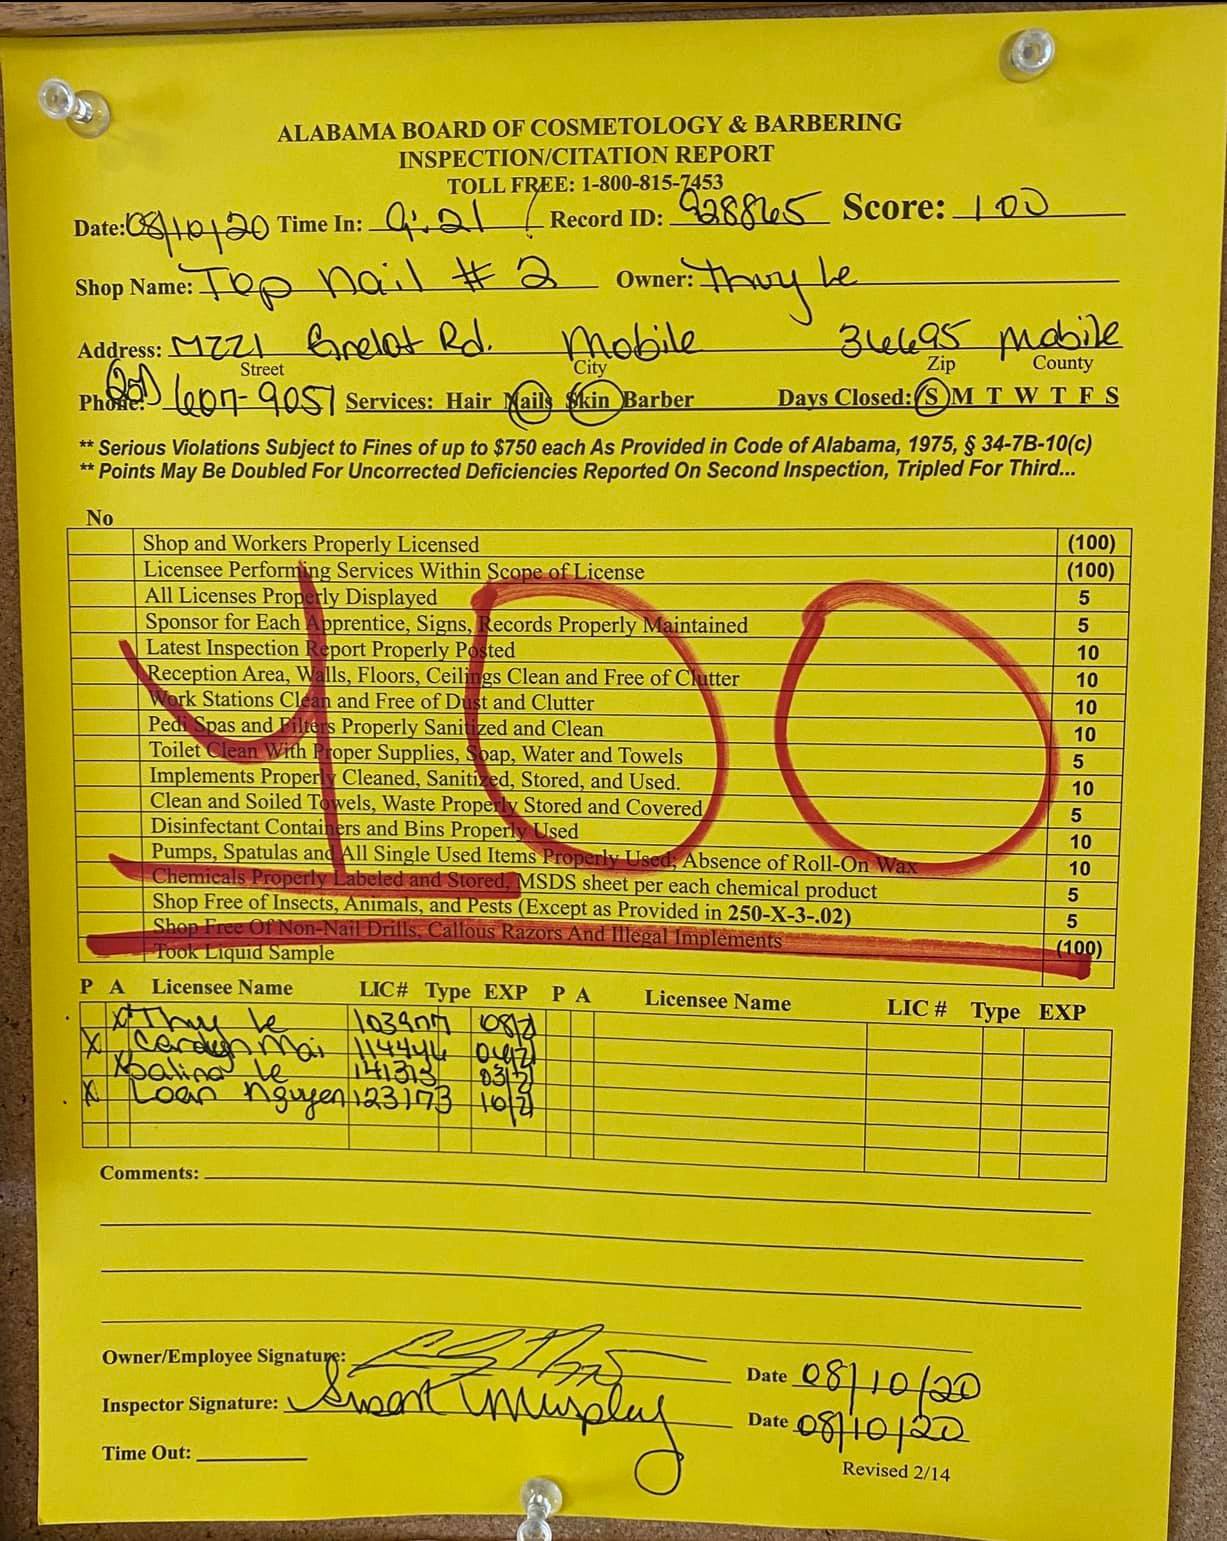 ALABAMA BOARD OF COSMETOLOGY & BARBERING
INSPECTION/CITATION REPORT
TOLL FREE: 1-800-815-7453
Date: 08/10/20 Time In: 9:21 Record ID: 928865 Score: 100
Shop Name: Top Nail # 2 Owner: Thuy Le
Address: M771 Grelot Rd. Mobile 36695 Mobile
Street City Zip County
Phone: (251) 607-9051 Services: Hair Nails Skin Barber Days Closed: S M T W T F S
** Serious Violations Subject to Fines of up to $750 each As Provided in Code of Alabama, 1975, § 34-7B-10(c)
** Points May Be Doubled For Uncorrected Deficiencies Reported On Second Inspection, Tripled For Third...
No
Shop and Workers Properly Licensed (100)
Licensee Performing Services Within Scope of License (100)
All Licenses Properly Displayed 5
Sponsor for Each Apprentice, Signs, Records Properly Maintained 5
Latest Inspection Report Properly Posted 10
Reception Area, Walls, Floors, Ceilings Clean and Free of Clutter 10
Work Stations Clean and Free of Dust and Clutter 10
Pedi Spas and Filters Properly Sanitized and Clean 10
Toilet Clean With Proper Supplies, Soap, Water and Towels 5
Implements Properly Cleaned, Sanitized, Stored, and Used. 10
Clean and Soiled Towels, Waste Properly Stored and Covered 5
Disinfectant Containers and Bins Properly Used 10
Pumps, Spatulas and All Single Used Items Properly Used; Absence of Roll-On Wax 10
Chemicals Properly Labeled and Stored, MSDS sheet per each chemical product 5
Shop Free of Insects, Animals, and Pests (Except as Provided in 250-X-3-.02) 5
Shop Free Of Non-Nail Drills, Callous Razors And Illegal Implements (100)
Took Liquid Sample
100
P A Licensee Name LIC# Type EXP P A Licensee Name LIC # Type EXP
X Thuy Le 103977 08/21
X Carolyn Mai 114446 04/21
X Salina Le 141313 03/21
X Loan Nguyen 123173 10/21
Comments:
Owner/Employee Signature: Date 08/10/20
Inspector Signature: Murphy Date 08/10/20
Time Out:
Revised 2/14